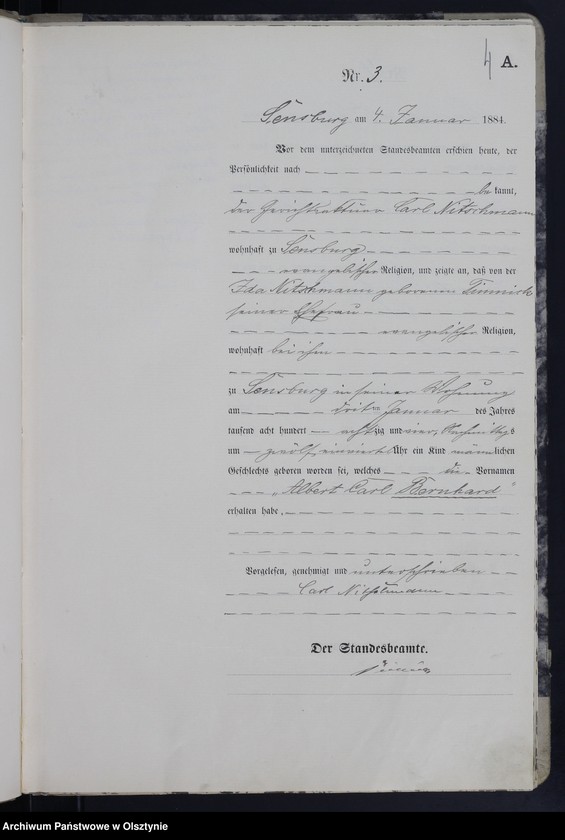 4 A.
Nr. 3.
Sensburg am 4. Januar 1884.
Vor dem unterzeichneten Standesbeamten erschien heute, der
Persönlichkeit nach
bekannt,
der Carl Nitschmann
wohnhaft zu Sensburg
evangelischer Religion, und zeigte an, daß von der
Ida Nitschmann geborenen
seiner Ehefrau
evangelischer Religion,
wohnhaft bei ihm
zu Sensburg in seiner Wohnung
am dritten Januar des Jahres
tausend acht hundert achtzig und vier, Nachmittags
um zwölf einviertel Uhr ein Kind männlichen
Geschlechts geboren worden sei, welches die Vornamen
„Albert Carl Bernhard"
erhalten habe.
Vorgelesen, genehmigt und unterschrieben
Carl Nitschmann
Der Standesbeamte.
Archiwum Państwowe w Olsztynie